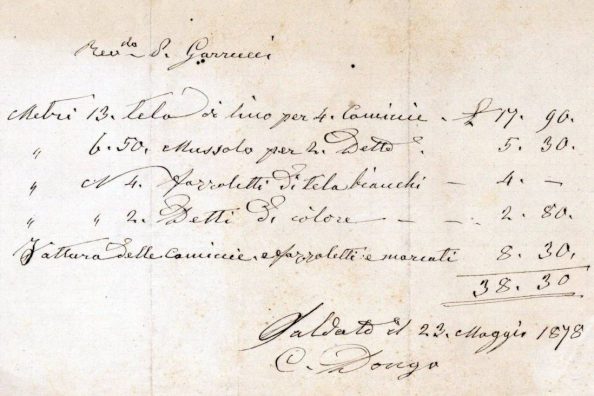 Rev.do P. Garrucci
Metri 13. tela di lino per 4. Camicie - £ 17. 90.
" 6.50. Mussolo per 2. Dette. 5. 30.
" N 4. fazzoletti di tela bianchi - 4. -
" " 2. Detti di colore - - - 2. 80.
Fattura delle Camicie e fazzoletti e marcati 8. 30.
38. 30
Saldato il 23. Maggio 1878
C. Dongo